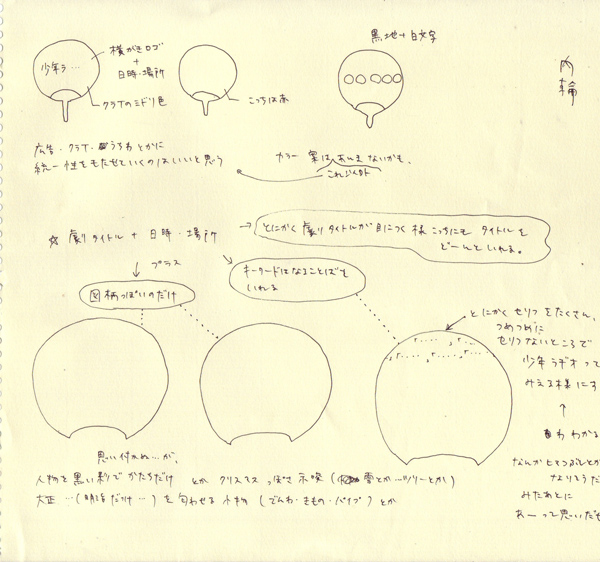 少年ラ…
横がきロゴ
+
日時・場所
クラTのミドリ色
こっちは赤
黒地+白文字
○○○○○
内輪
広告・クラT・うちわとかに
統一性をもたせていくのはいいと思う
カラー 案はあんまないかも。
これジャスト
☆ 劇タイトル + 日時・場所
→ とにかく劇タイトルが目につく様 こっちにも タイトルを
どーんといれる。
プラス
図柄っぽいのだけ
キーワードになることばを
いれる
とにかく セリフ をたくさん、
つめつめに
セリフないところで
少年ラヂオって
みえる様にす
わかる
なんか
みたあとに
あーって思いだせ
思い付かぬ…が、
人物を黒い影でかたちだけ とか クリスマスっぽさ示唆 (雪とか…ツリーとか)
大正…(明治だけ…)を匂わせる小物 (でんわ・きもの・パイプ) とか